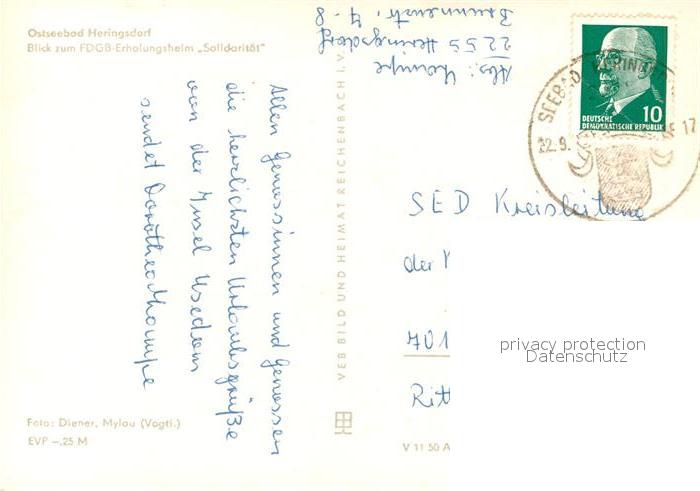 Ostseebad Heringsdorf
Blick zum FDGB-Erholungsheim „Solidarität“
Allen Genossinnen und Genossen
die herzlichsten Urlaubsgrüße
von der Insel Usedom
sendet Dorothea
Foto: Diener, Mylau (Vogtl.)
EVP –,25 M
VEB BILD UND HEIMAT REICHENBACH I. V.
V 11 50 A
Abs.:
2255 Heringsdorf
Brunnenstr. 7-8
DEUTSCHE
DEMOKRATISCHE REPUBLIK
10
SEEBAD
22.9.
17
SED Kreisleitung
der
701
Ritt
privacy protection
Datenschutz